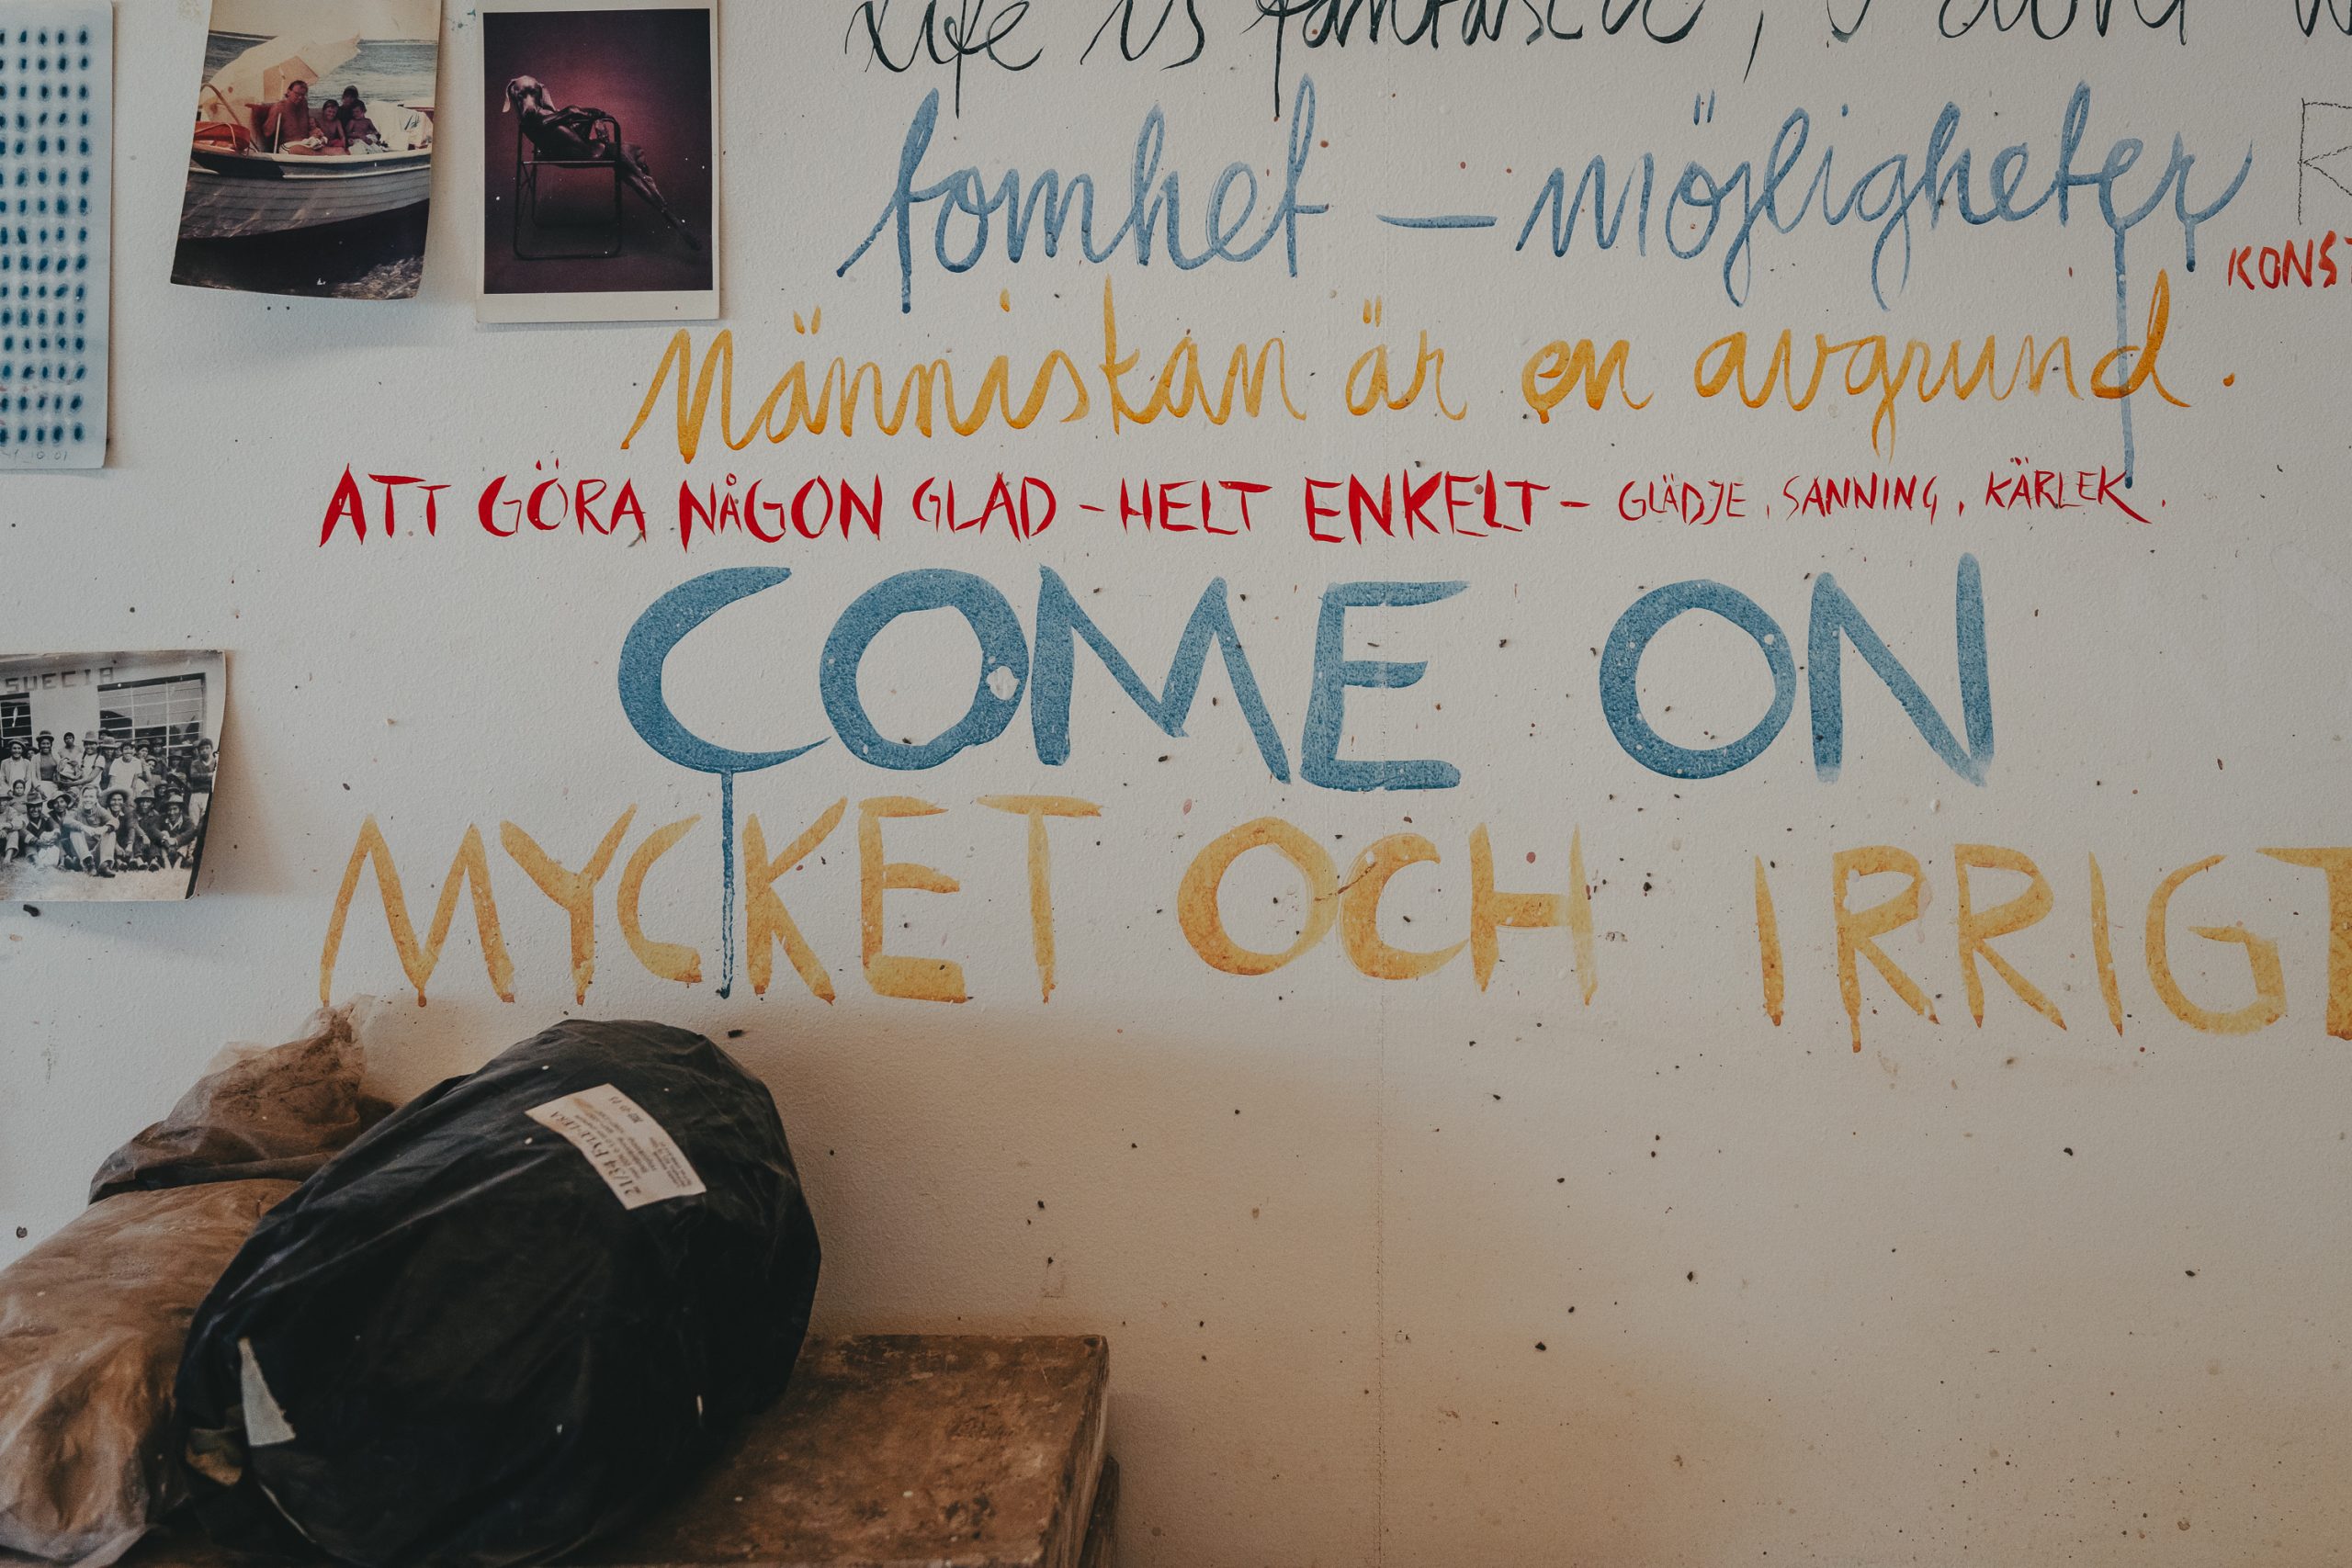 Life is fantastic, I don't
tomhet – möjligheter
KONST
Människan är en avgrund.
ATT GÖRA NÅGON GLAD – HELT ENKELT – GLÄDJE, SANNING, KÄRLEK.
COME ON
MYCKET OCH IRRIGT
SUECIA
21/34 FYLL-LERA